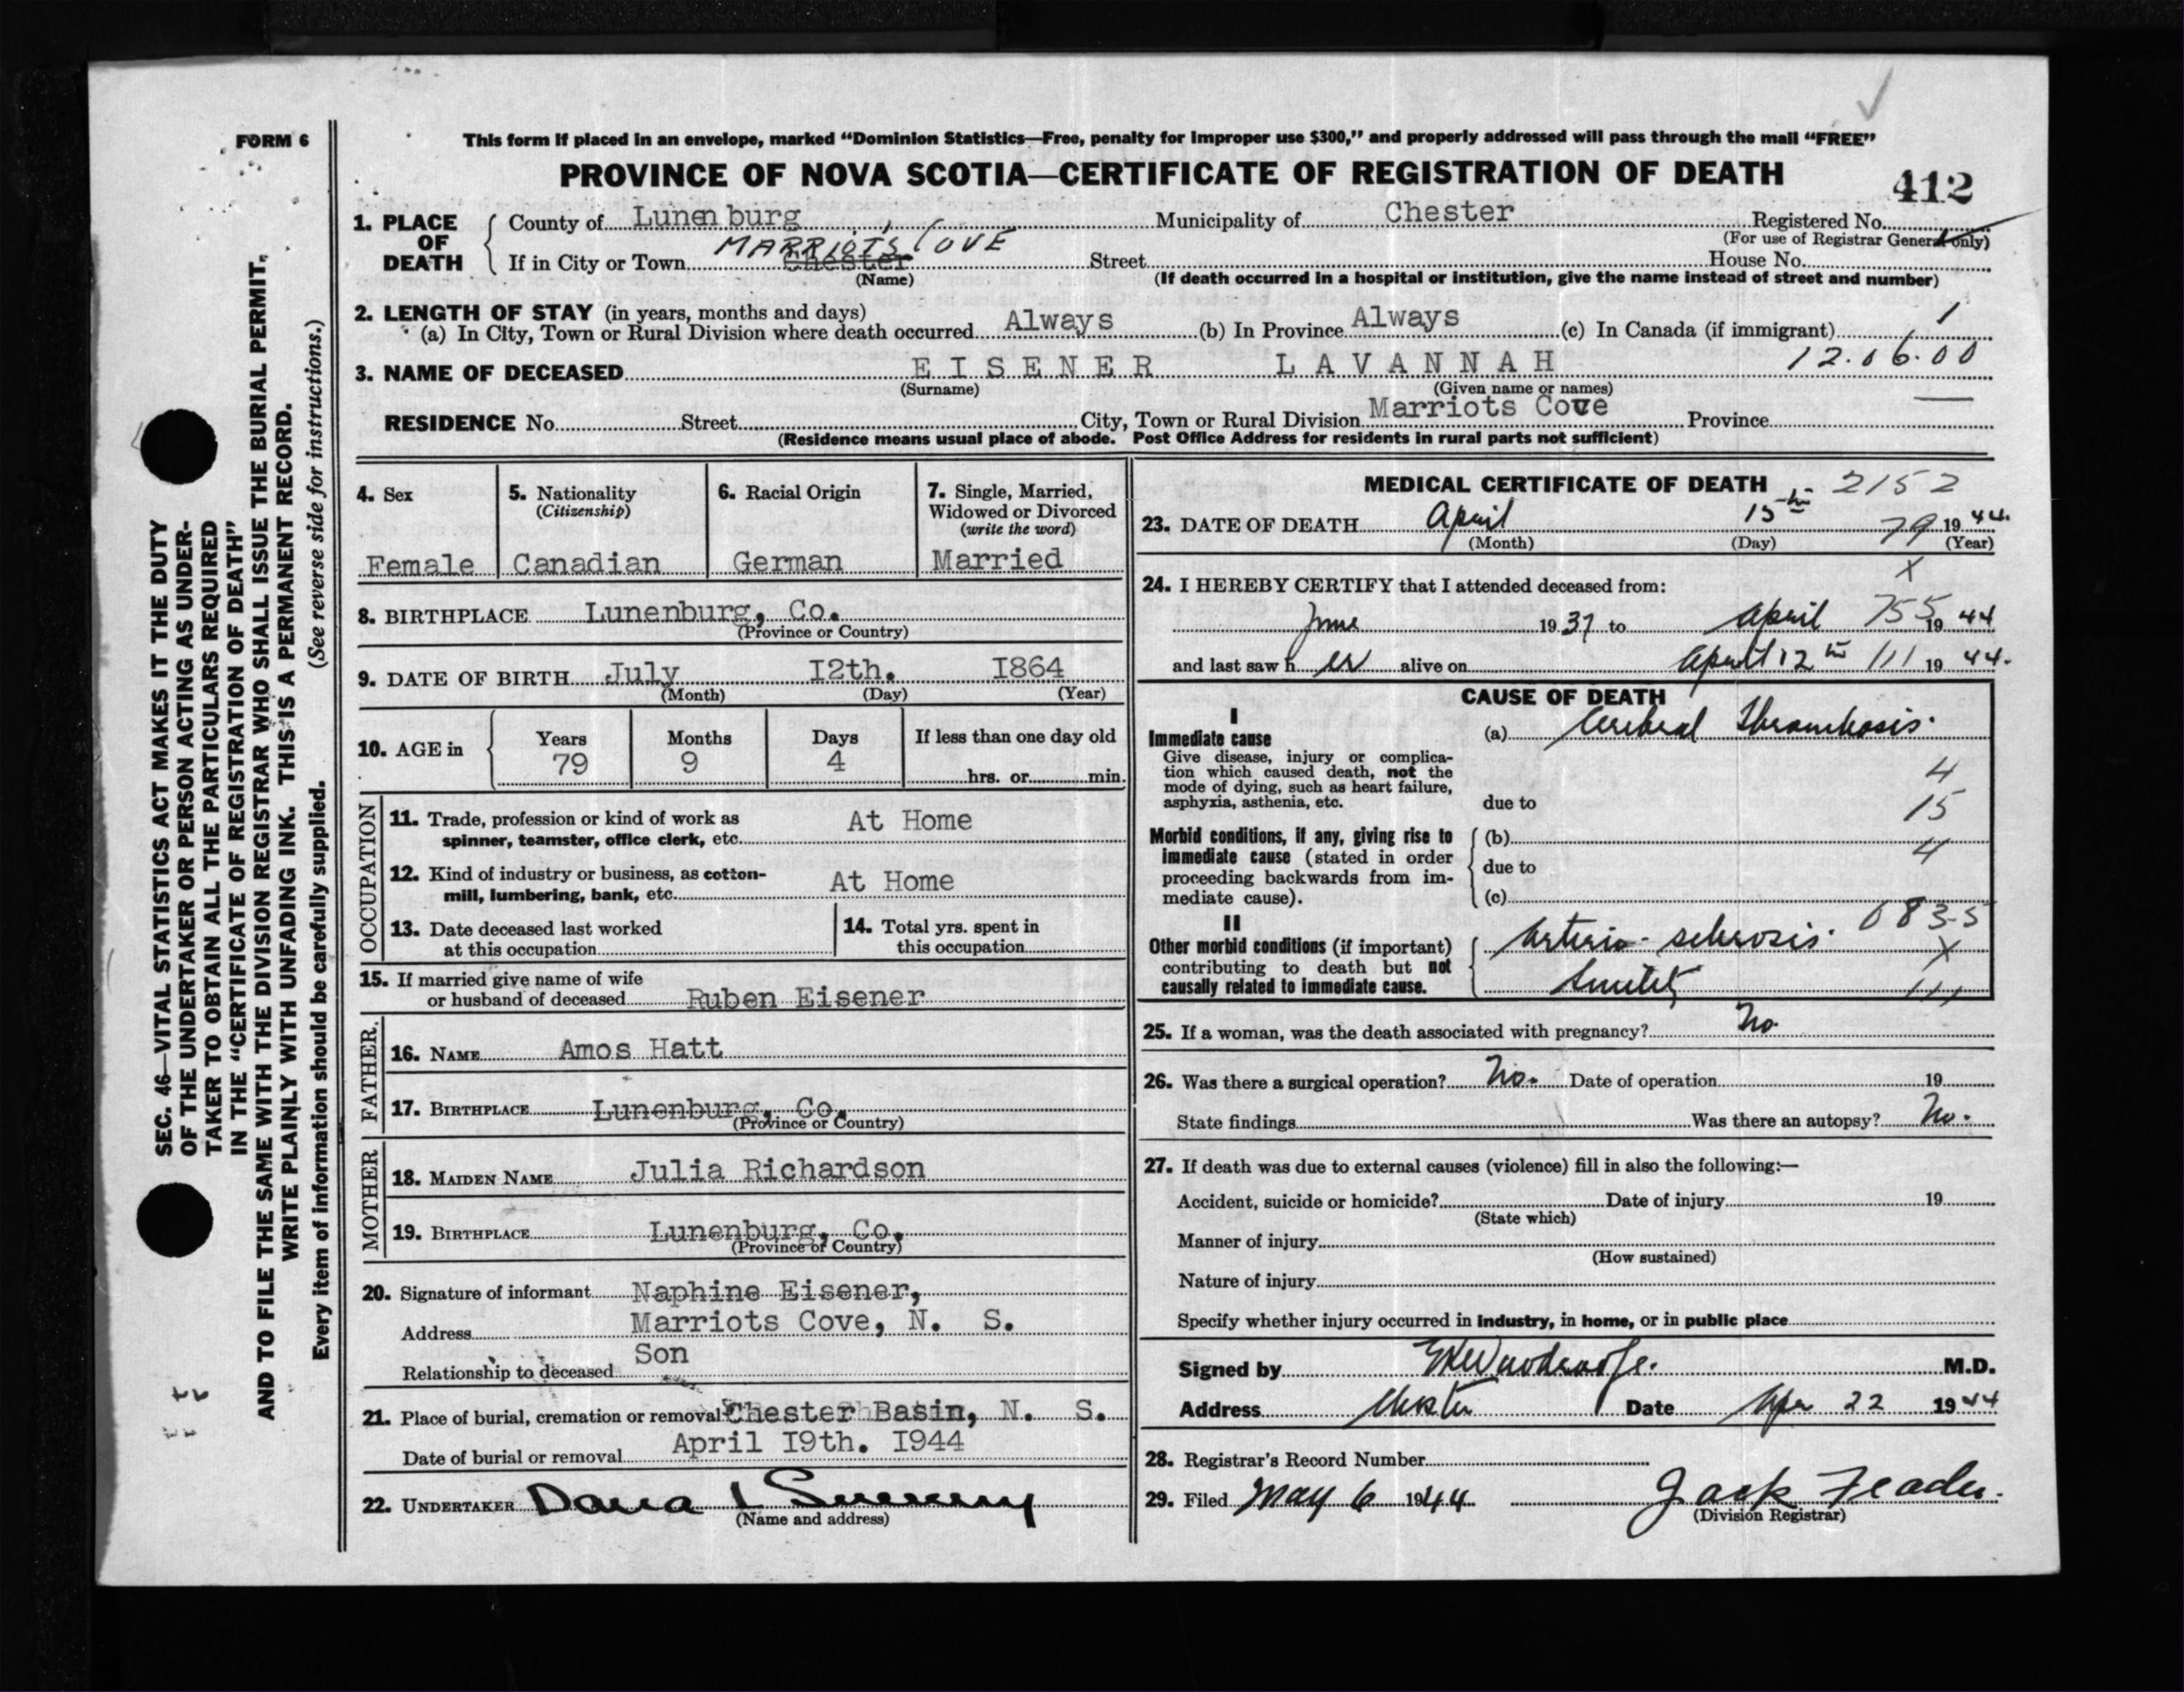 FORM 6
This form if placed in an envelope, marked “Dominion Statistics—Free, penalty for improper use $300,” and properly addressed will pass through the mail “FREE”
PROVINCE OF NOVA SCOTIA—CERTIFICATE OF REGISTRATION OF DEATH
412
1. PLACE OF DEATH
County of Lunenburg Municipality of Chester Registered No.
(For use of Registrar General only)
MARRIOTS COVE
If in City or Town Chester Street House No.
(Name) (If death occurred in a hospital or institution, give the name instead of street and number)
2. LENGTH OF STAY (in years, months and days)
(a) In City, Town or Rural Division where death occurred Always (b) In Province Always (c) In Canada (if immigrant) 1
3. NAME OF DECEASED EISENER LAVANNAH 12.06.00
(Surname) (Given name or names)
RESIDENCE No. Street City, Town or Rural Division Marriots Cove Province
(Residence means usual place of abode. Post Office Address for residents in rural parts not sufficient)
SEC. 46—VITAL STATISTICS ACT MAKES IT THE DUTY
OF THE UNDERTAKER OR PERSON ACTING AS UNDER-
TAKER TO OBTAIN ALL THE PARTICULARS REQUIRED
IN THE “CERTIFICATE OF REGISTRATION OF DEATH”
AND TO FILE THE SAME WITH THE DIVISION REGISTRAR WHO SHALL ISSUE THE BURIAL PERMIT.
WRITE PLAINLY WITH UNFADING INK. THIS IS A PERMANENT RECORD.
Every item of information should be carefully supplied. (See reverse side for instructions.)
4. Sex
Female
5. Nationality
(Citizenship)
Canadian
6. Racial Origin
German
7. Single, Married,
Widowed or Divorced
(write the word)
Married
8. BIRTHPLACE Lunenburg, Co.
(Province or Country)
9. DATE OF BIRTH July I2th. I864
(Month) (Day) (Year)
10. AGE in
Years Months Days If less than one day old
79 9 4 hrs. or min.
OCCUPATION
11. Trade, profession or kind of work as
spinner, teamster, office clerk, etc. At Home
12. Kind of industry or business, as cotton-
mill, lumbering, bank, etc. At Home
13. Date deceased last worked
at this occupation
14. Total yrs. spent in
this occupation
15. If married give name of wife
or husband of deceased Ruben Eisener
FATHER.
16. NAME Amos Hatt
17. BIRTHPLACE Lunenburg, Co.
(Province or Country)
MOTHER
18. MAIDEN NAME Julia Richardson
19. BIRTHPLACE Lunenburg, Co.
(Province or Country)
20. Signature of informant Naphine Eisener,
Address Marriots Cove, N. S.
Relationship to deceased Son
21. Place of burial, cremation or removal Chester Basin, N. S.
Date of burial or removal April I9th. I944
22. UNDERTAKER Dana L Sweeny
(Name and address)
MEDICAL CERTIFICATE OF DEATH 2152
23. DATE OF DEATH April 15th 79 1944.
(Month) (Day) (Year)
X
24. I HEREBY CERTIFY that I attended deceased from:
June 1937 to April 755 1944
and last saw her alive on April 12th 111 1944.
CAUSE OF DEATH
I
Immediate cause (a) Cerebral Thrombosis.
Give disease, injury or complica-
tion which caused death, not the
mode of dying, such as heart failure,
asphyxia, asthenia, etc. due to
4
15
4
Morbid conditions, if any, giving rise to (b)
immediate cause (stated in order due to
proceeding backwards from im-
mediate cause). (c)
II
083-5
Other morbid conditions (if important) Arterio-sclerosis. X
contributing to death but not
causally related to immediate cause. Senility 111
25. If a woman, was the death associated with pregnancy? No
26. Was there a surgical operation? No. Date of operation 19
State findings Was there an autopsy? No.
27. If death was due to external causes (violence) fill in also the following:—
Accident, suicide or homicide? Date of injury 19
(State which)
Manner of injury
(How sustained)
Nature of injury
Specify whether injury occurred in industry, in home, or in public place
Signed by M.D.
Address Chester Date Apr 22 1944
28. Registrar's Record Number
29. Filed May 6 1944 Jack Feader.
(Division Registrar)